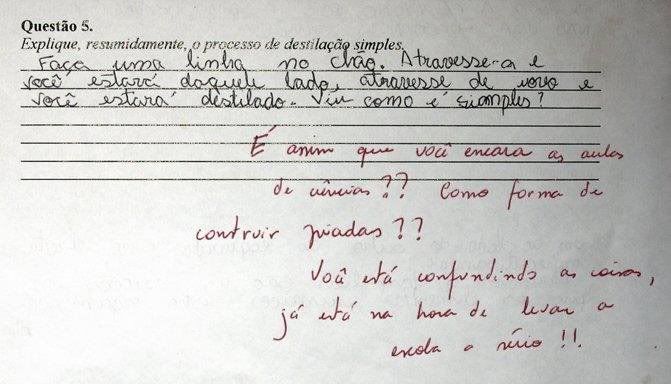 Questão 5.
Explique, resumidamente, o processo de destilação simples.
Faça uma linha no chão. Atravesse-a e
você estará daquele lado, atravesse de novo e
você estará destilado. Viu como é simples?
É assim que você encara as aulas
de ciências?? Como forma de
construir piadas??
Você está confundindo as coisas,
já está na hora de levar a
escola a sério!!.